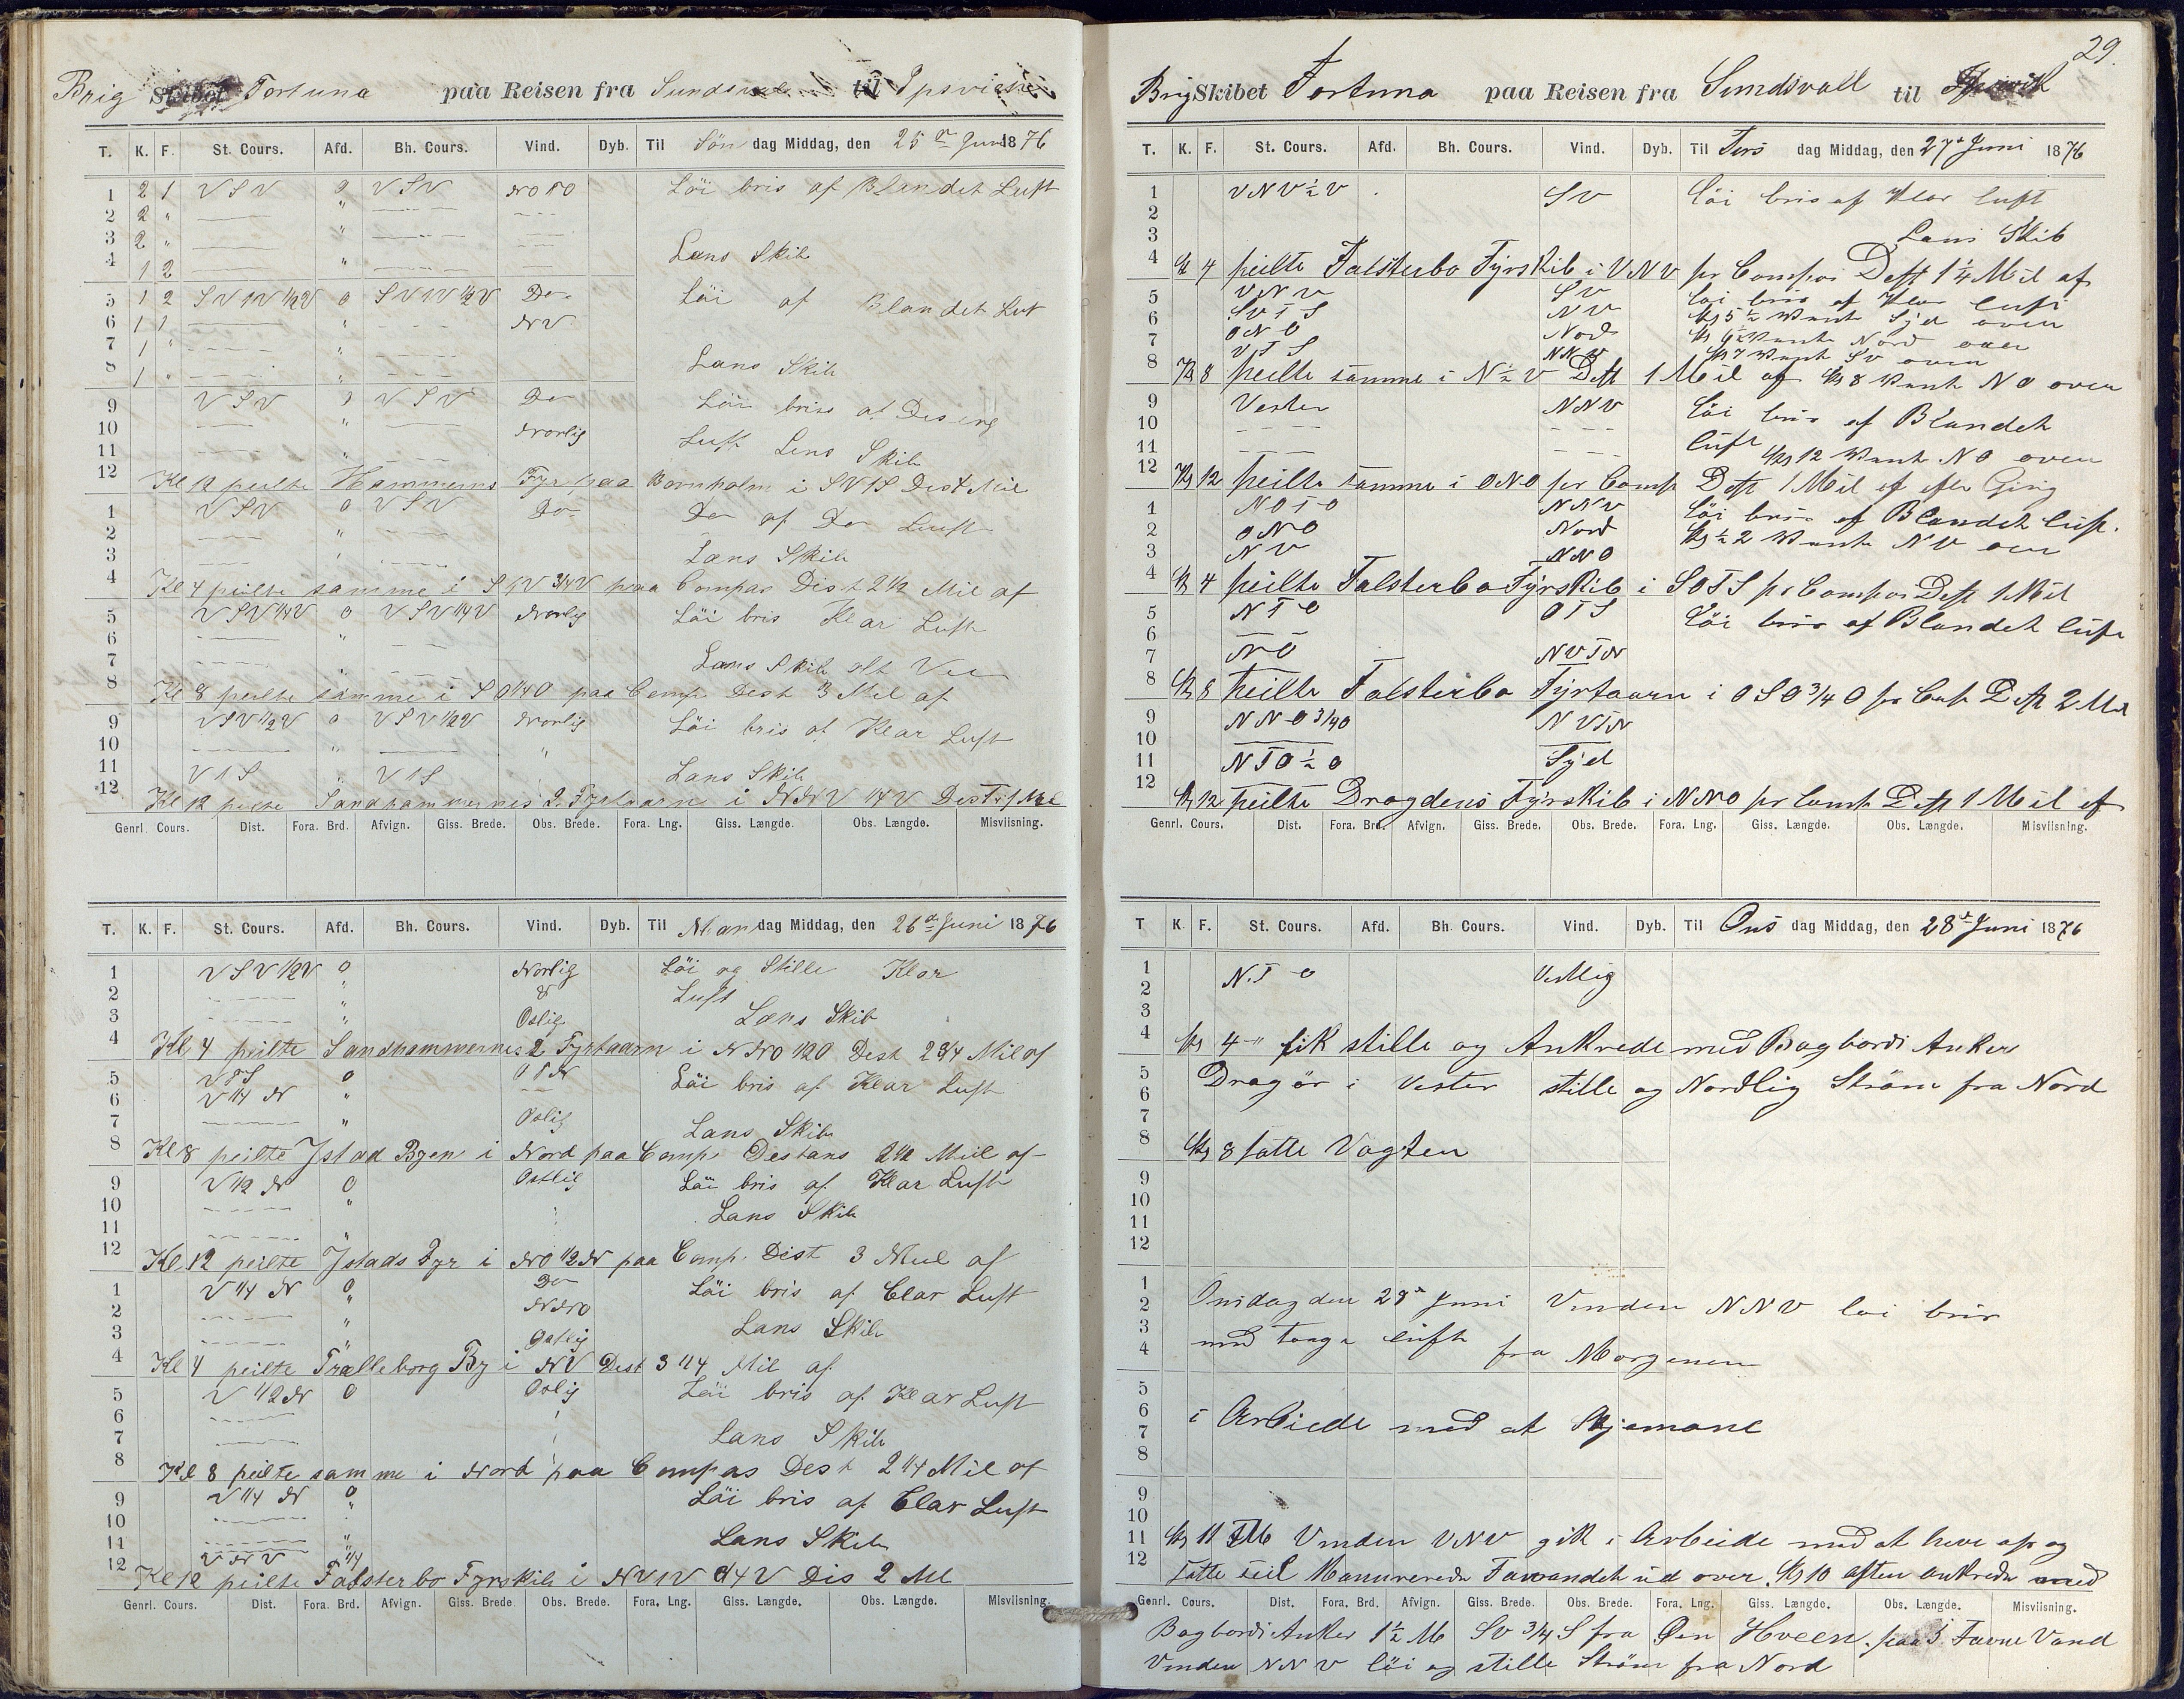 Brig Skibet Fortuna paa Reisen fra Sundsvall til Ipsvich
T. K. F. St. Cours. Afd. Bh. Cours. Vind. Dyb. Til Søn dag Middag, den 25de Juni 1876
1 2 1 VSV 0 VSV NOTO Löi bris af Blandet Luft
2 2 " —— " —— ——
3 2 " —— " —— —— Læns Skib
4 1 2 —— " —— ——
5 1 2 SVTV 1/2V 0 SVTV 1/2V Do Löi af Blandet Luft
6 1 1 —— " —— NV
7 1 " —— " —— Lans Skib
8 1 " —— " ——
9 VSV 0 VSV Do Löi bris af Diseng
10 —— " —— Norlig Luft Lens Skib
11 —— " ——
12 Kl 12 peilte Hammerens Fyr paa Bornholm i SVTS Dist Mil
1 VSV 0 VSV Do Do af Do Luft
2 —— " ——
3 —— " —— Lans Skib
4 Kl 4 peilte samme i STV 3/4V paa Compas Dist 2 1/2 Mil af
5 VSV 1/4V 0 VSV 1/4V Norlig Löi bris Klar Luft
6 —— " ——
7 —— " —— Lans Skib alt Vel
8 Kl 8 peilte samme i SO 1/4 O paa Comp. Dest 3 Mil af
9 VSV 1/2V 0 VSV 1/2V Norlig Löi bris af Klar Luft
10 —— " —— "
11 VTS " VTS Lans Skib
12 Kl 12 peilte Sandhammernes 2 Fyrtaarn i NNV 1/4 V Dest 1 Mil
Genrl. Cours. Dist. Fora. Brd. Afvign. Giss. Brede. Obs. Brede. Fora. Lng. Giss. Længde. Obs. Længde. Misviisning.
T. K. F. St. Cours. Afd. Bh. Cours. Vind. Dyb. Til Man dag Middag, den 26de Juni 1876
1 VSV 1/2V 0 Norlig Löi og Stille Klar
2 —— " & Luft
3 —— " Oslig Læns Skib
4 Kl 4 peilte Sandhammernes 2 Fyrtaarn i NNO 1/2 O Dest 2 3/4 Mil af
5 VTS 0 OTN Löi bris af Klar Luft
6 V 1/4 N " ——
7 —— " Oslig Lans Skib
8 Kl 8 peilte Jstad Byen i Nord paa Comp. Destans 2 1/2 Miil af
9 V 1/2 N 0 Ostlig Löi bris af Klar Luft
10 —— " Lans Skib
11 —— "
12 Kl 12 peilte Jstads Fyr i NO 1/2 N paa Comp. Dist 3 Miil af
1 V 1/4 N 0 Do Löi bris af Clar Luft
2 —— " NNO
3 —— " Ostlig Lans Skib
4 Kl 4 peilte Tralleborg By i NV Dest 3 1/4 Mil af
5 V 1/2 N 0 Oslig Löi bris af Klar Luft
6 ——
7 —— Lans Skib
8 Kl 8 peilte samme i Nord paa Compas Dest 2 1/4 Mil af
9 V 1/4 N 0 Löi bris af Clar Luft
10 —— "
11 —— " Lans Skib
12 VNV 1/4
Kl 12 peilte Falsterbo Fyrskib i NVTV 1/4 V Dis 2 Ml
Genrl. Cours. Dist. Fora. Brd. Afvign. Giss. Brede. Obs. Brede. Fora. Lng. Giss. Længde. Obs. Længde. Misviisning.
29.
Brig Skibet Fortuna paa Reisen fra Sundsvall til
T. K. F. St. Cours. Afd. Bh. Cours. Vind. Dyb. Til Tirs dag Middag, den 27de Juni 1876
1 VNV 1/2 V SV Löi bris af Klar luft
2
3 Lans Skib
4 Kl 4 peilte Falsterbo Fÿrskib i VNV pr Compas Dest 1 1/4 Mil af
5 VNV SV löi bris af Klar luft
6 SVTS NV Kl 5 1/2 Vendt Syd over
7 ONO Nord Kl 6 1/2 Vendt Nord over
8 VTS NNV Kl 7 Vendt SV over
Kl 8 peilte samme i N 1/2 V Dest 1 Mil af Kl 8 Vendt NO over
9 Vester NNV Löi bris af Blandet
10 —— ——
11 —— —— luft Kl 12 Vendt NO over
12 Kl 12 peilte samme i ONO pr Comp Dest 1 Mil af efter Gisng
1 NOTO NNV Löi bris af Blandet luft.
2 ONO Nord Kl 1/2 2 Vendt NV over
3 NV NNO
4 Kl 4 peilte Falsterbo Fÿrskib i SOTS pr Compas Dest 1 Mil
5 NTO OTS Löi bris af Blandet luft
6
7 NO NVTN
8 Kl 8 peilte Falsterbo Fÿrtaarn i OSO 3/4 O pr Comp Dest 2 Mil
9 NNO 3/4 O NVTN
10
11 NTO 1/2 O Syd
12 Kl 12 peilte Dragdens Fÿrskib i NNO pr Comp Dest 1 Mil af
Genrl. Cours. Dist. Fora. Brd. Afvign. Giss. Brede. Obs. Brede. Fora. Lng. Giss. Længde. Obs. Længde. Misviisning.
T K. F. St. Cours. Afd. Bh. Cours. Vind. Dyb. Til Ons dag Middag, den 28de Juni 1876
1 NTO Vestlig
2
3
4 Kl 4 fik stille og Ankrede med Bagbords Anker
5 Dragör i Vester stille og Nordlig Ström fra Nord
6
7
8 Kl 8 satte Vagten
9
10
11
12
1 Onsdag den 28de Juni Vinden NNV loi bris
2
3 med taage luft fra Morgenen
4
5
6 i Arbeide med at Skjemane
7
8
9
10
11 Kl 11 FM Vinden VNV gik i Arbeide med at hive op og
12 satte seil Manurerede Farvandet ud over. Kl 10 aften ankrede med
Genrl. Cours. Dist. Fora. Brd. Afvign. Giss. Brede. Obs. Brede. Fora. Lng. Giss. Længde. Obs. Længde. Misviisning.
Bagbords Anker 1 1/2 M SV 3/4 S fra Øen Hveen. paa Favne Vand
Vinden NNV löi og stille Ström fra Nord